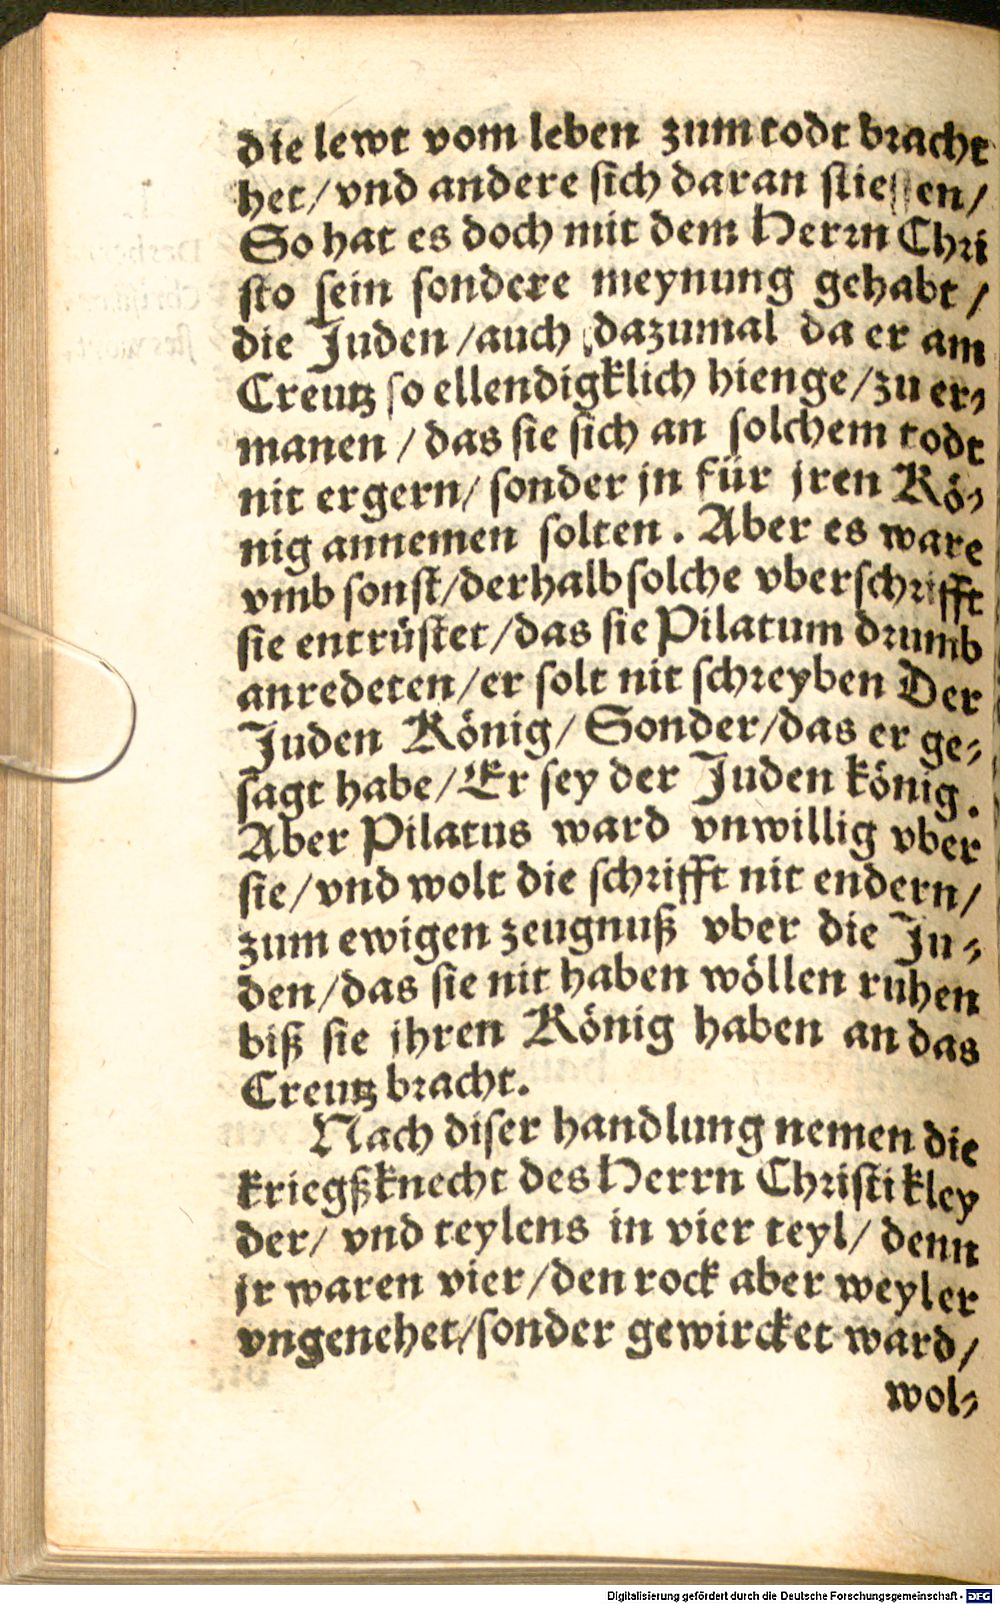 die lewt vom leben zum todt bracht
het/ vnd andere sich daran stiessen/
So hat es doch mit dem Herrn Chri
sto sein sondere meynung gehabt/
die Juden/auch dazumal da er am
Creutz so ellendigklich hienge/zu er-
manen/ das sie sich an solchem todt
nit ergern/ sonder jn für jren Kö-
nig annemen solten. Aber es ware
vmb sonst/derhalb solche vberschrifft
sie entrüstet/das sie Pilatum drumb
anredeten/er solt nit schreyben Der
Juden König/ Sonder/das er ge-
sagt habe/Er sey der Juden könig.
Aber Pilatus ward vnwillig vber
sie/vnd wolt die schrifft nit endern/
zum ewigen zeugnuß vber die Ju-
den/das sie nit haben wöllen ruhen
biß sie jhren König haben an das
Creutz bracht.
Nach diser handlung nemen die
kriegßknecht des Herrn Christi kley
der/ vnd teylens in vier teyl/ denn
jr waren vier/den rock aber weyl er
vngenehet/sonder gewircket ward/
wol-
Digitalisierung gefördert durch die Deutsche Forschungsgemeinschaft - DFG